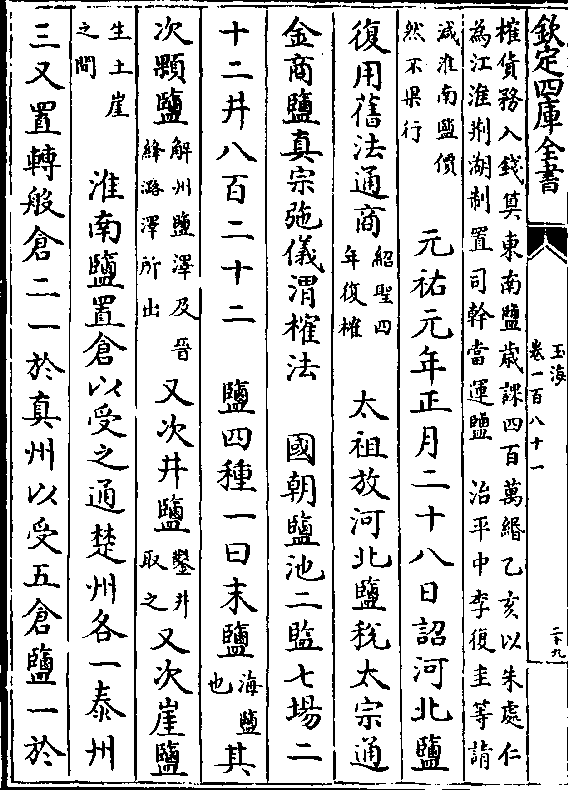 欽定四庫全書
玉海
卷一百八十一
二十九
榷貨務入錢筭東南鹽歲課四百萬緡乙亥以朱處仁
為江淮荆湖制置司幹當運鹽 治平中李復圭等請
減淮南鹽價
然不果行
元祐元年正月二十八日詔河北鹽
復用舊法通商
紹聖四
年復榷
太祖放河北鹽稅太宗通
金商鹽真宗弛儀渭榷法 國朝鹽池二監七場二
十二井八百二十二 鹽四種一曰末鹽
海鹽
也
其
次顆鹽
解州鹽澤及晉
絳潞澤所出
又次井鹽
鑿井
取之
又次崖鹽
生土崖
之間
淮南鹽置倉以受之通楚州各一泰州
三又置轉般倉二一於真州以受五倉鹽一於